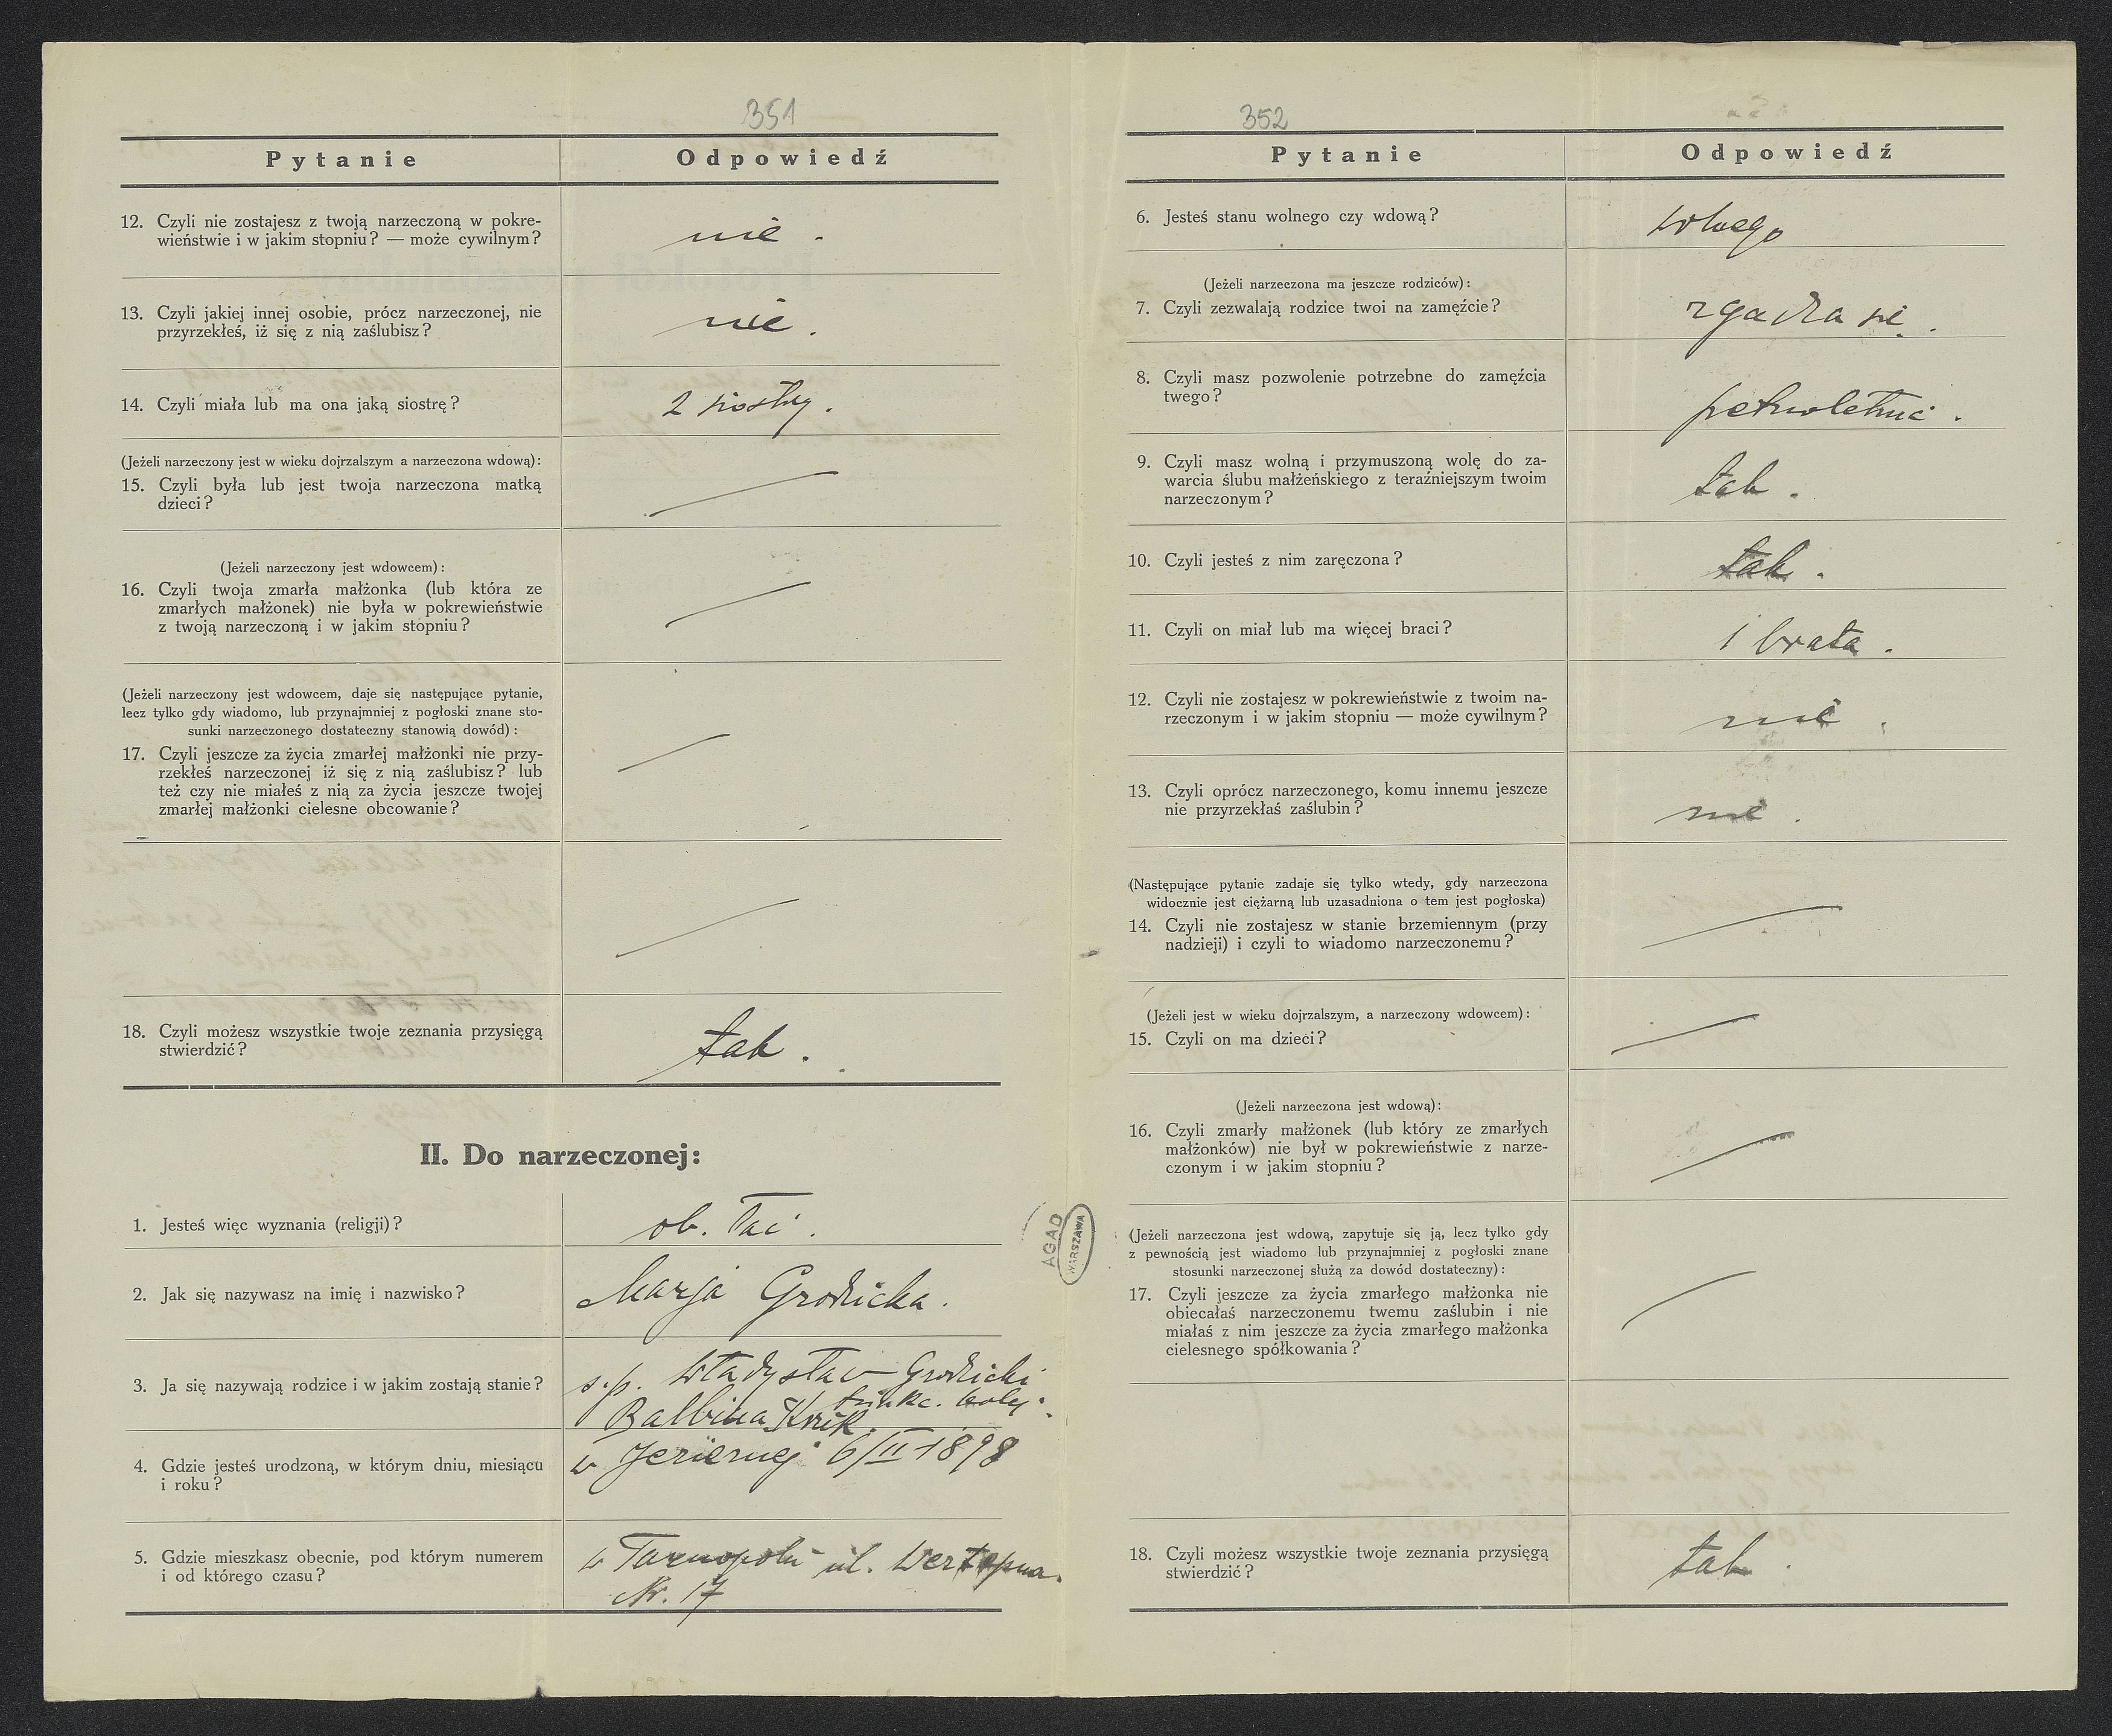 351
Pytanie Odpowiedź
12. Czyli nie zostajesz z twoją narzeczoną w pokre-
wieństwie i w jakim stopniu? — może cywilnym?
nie.
13. Czyli jakiej innej osobie, prócz narzeczonej, nie
przyrzekłeś, iż się z nią zaślubisz?
nie.
14. Czyli miała lub ma ona jaką siostrę?
2 siostry.
(Jeżeli narzeczony jest w wieku dojrzalszym a narzeczona wdową):
15. Czyli była lub jest twoja narzeczona matką
dzieci?
(Jeżeli narzeczony jest wdowcem):
16. Czyli twoja zmarła małżonka (lub która ze
zmarłych małżonek) nie była w pokrewieństwie
z twoją narzeczoną i w jakim stopniu?
(Jeżeli narzeczony jest wdowcem, daje się następujące pytanie,
lecz tylko gdy wiadomo, lub przynajmniej z pogłoski znane sto-
sunki narzeczonego dostateczny stanowią dowód):
17. Czyli jeszcze za życia zmarłej małżonki nie przy-
rzekłeś narzeczonej iż się z nią zaślubisz? lub
też czy nie miałeś z nią za życia jeszcze twojej
zmarłej małżonki cielesne obcowanie?
18. Czyli możesz wszystkie twoje zeznania przysięgą
stwierdzić?
tak.
II. Do narzeczonej:
1. Jesteś więc wyznania (religji)?
ob. łać.
2. Jak się nazywasz na imię i nazwisko?
Marja Grodzicka.
3. Ja się nazywają rodzice i w jakim zostają stanie?
s.p. Władysław Grodzicki
funkc. kolej.
Balbina
4. Gdzie jesteś urodzoną, w którym dniu, miesiącu
i roku?
w Jeziernej 6/II 1898
5. Gdzie mieszkasz obecnie, pod którym numerem
i od którego czasu?
w Tarnopolu ul. Wertepna.
Nr. 17
AGAD
WARSZAWA
352
Pytanie Odpowiedź
6. Jesteś stanu wolnego czy wdową?
wolnego
(Jeżeli narzeczona ma jeszcze rodziców):
7. Czyli zezwalają rodzice twoi na zamęźcie?
zgadza się.
8. Czyli masz pozwolenie potrzebne do zamęźcia
twego?
pełnoletnia.
9. Czyli masz wolną i przymuszoną wolę do za-
warcia ślubu małżeńskiego z teraźniejszym twoim
narzeczonym?
tak.
10. Czyli jesteś z nim zaręczona?
tak.
11. Czyli on miał lub ma więcej braci?
1 brata.
12. Czyli nie zostajesz w pokrewieństwie z twoim na-
rzeczonym i w jakim stopniu — może cywilnym?
nie.
13. Czyli oprócz narzeczonego, komu innemu jeszcze
nie przyrzekłaś zaślubin?
nie.
(Następujące pytanie zadaje się tylko wtedy, gdy narzeczona
widocznie jest ciężarną lub uzasadniona o tem jest pogłoska)
14. Czyli nie zostajesz w stanie brzemiennym (przy
nadzieji) i czyli to wiadomo narzeczonemu?
(Jeżeli jest w wieku dojrzalszym, a narzeczony wdowcem):
15. Czyli on ma dzieci?
(Jeżeli narzeczona jest wdową):
16. Czyli zmarły małżonek (lub który ze zmarłych
małżonków) nie był w pokrewieństwie z narze-
czonym i w jakim stopniu?
(Jeżeli narzeczona jest wdową, zapytuje się ją, lecz tylko gdy
z pewnością jest wiadomo lub przynajmniej z pogłoski znane
stosunki narzeczonej służą za dowód dostateczny):
17. Czyli jeszcze za życia zmarłego małżonka nie
obiecałaś narzeczonemu twemu zaślubin i nie
miałaś z nim jeszcze za życia zmarłego małżonka
cielesnego spółkowania?
18. Czyli możesz wszystkie twoje zeznania przysięgą
stwierdzić?
tak.